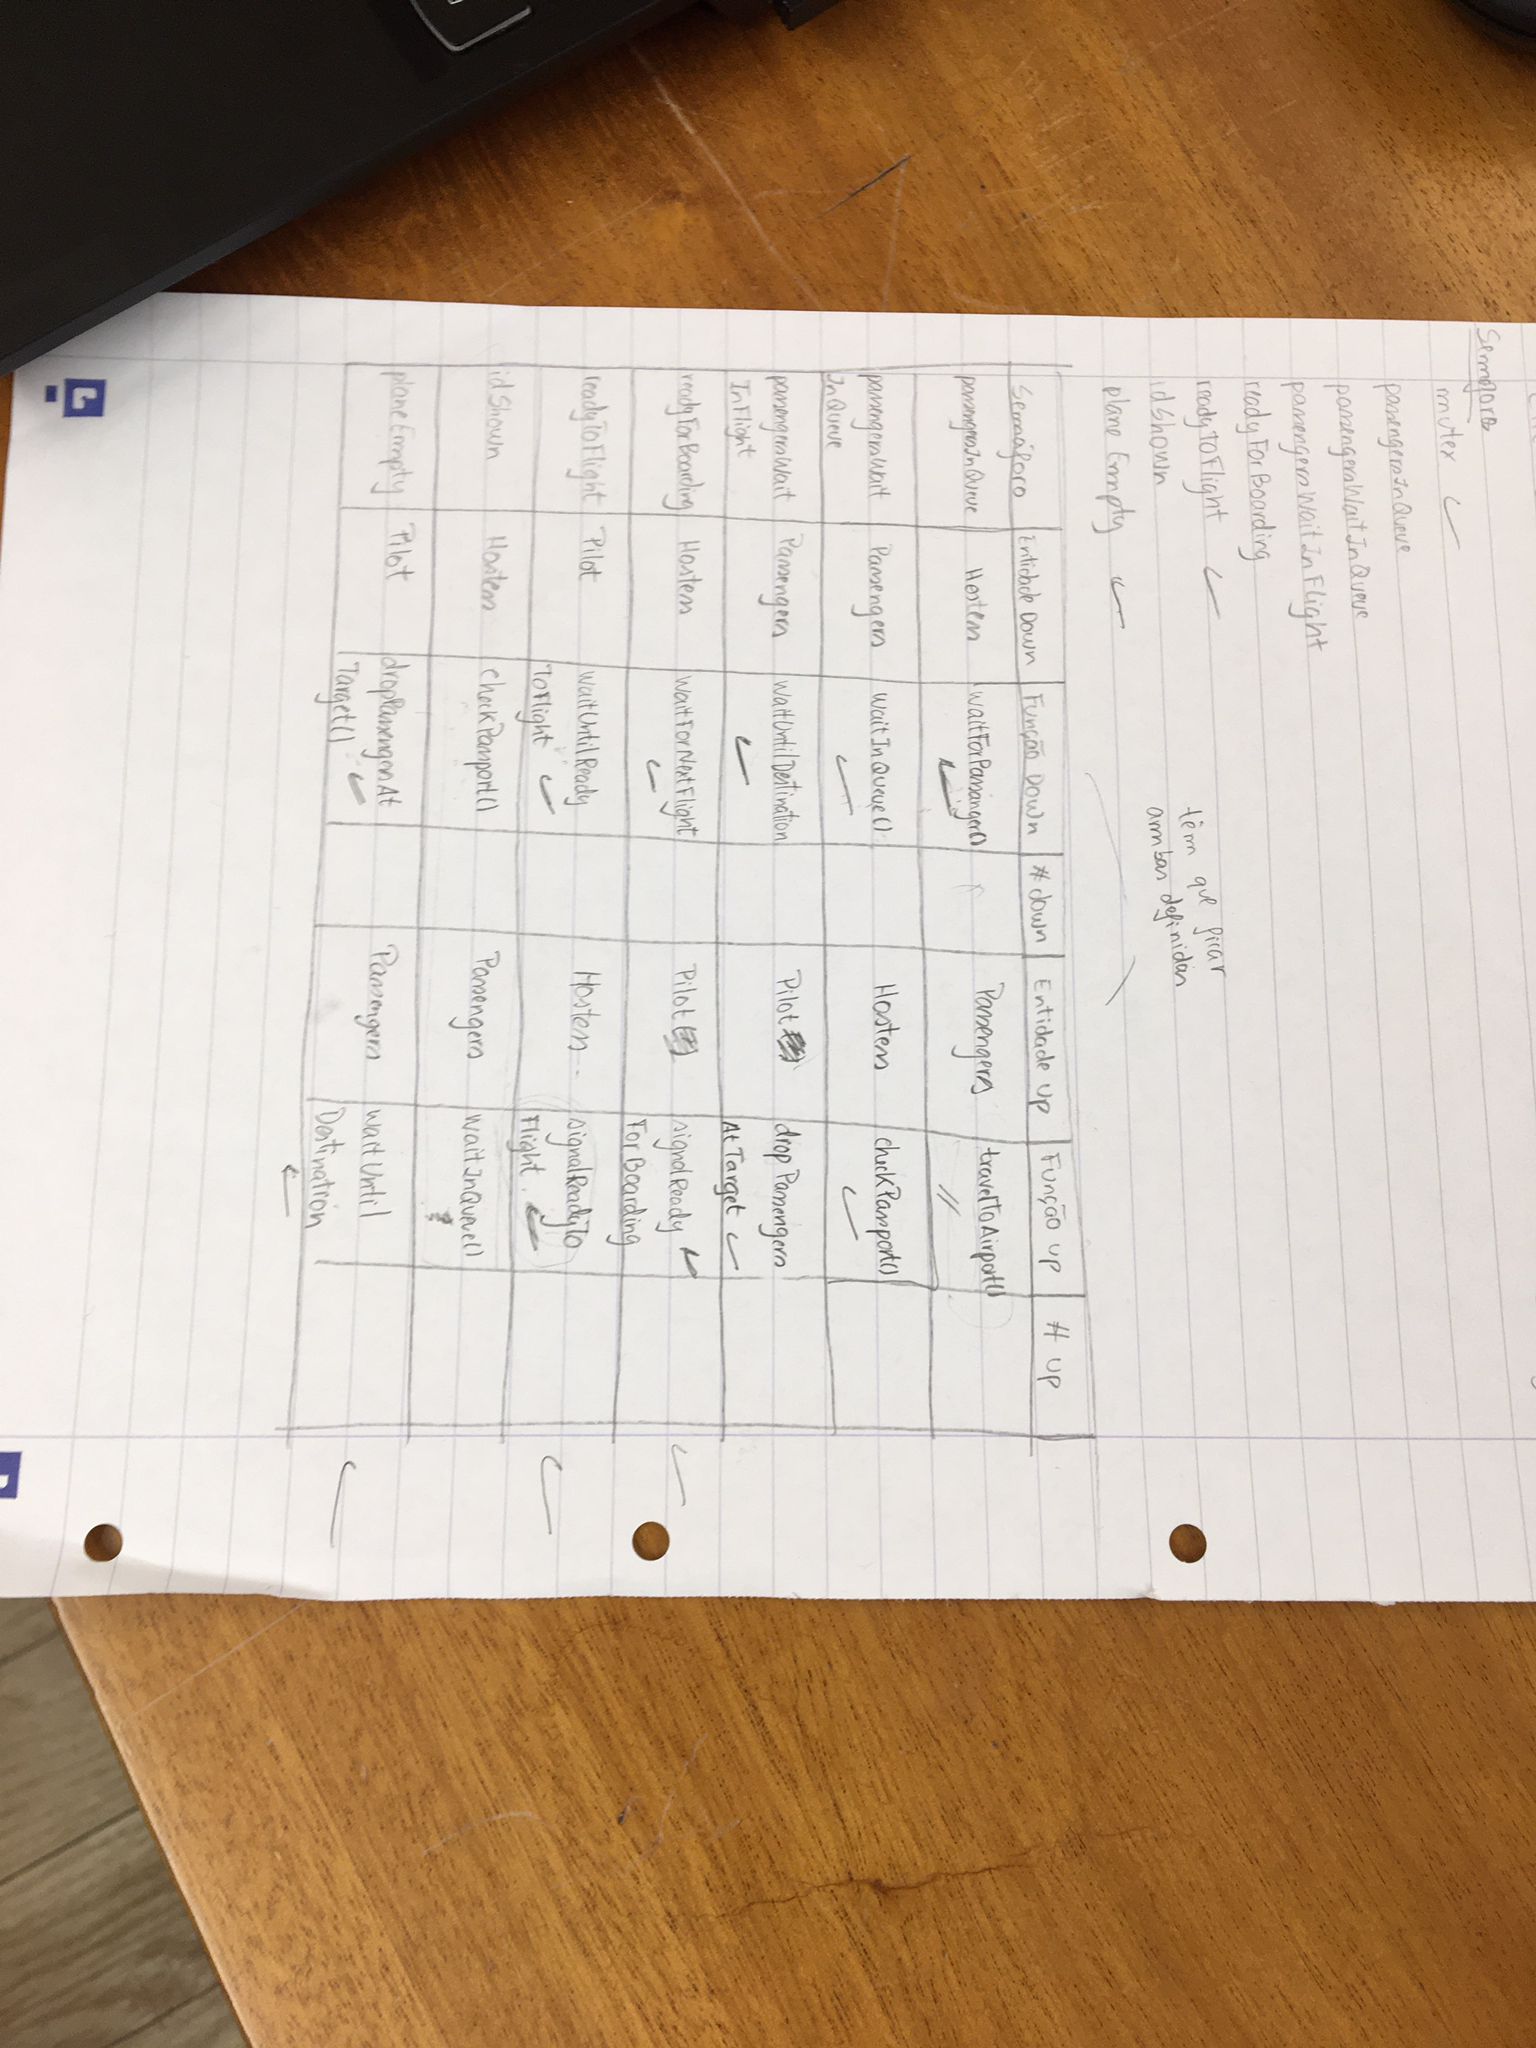 Semáforo
mutex
passengersInQueue
passengersWaitInQueue
passengersWaitInFlight
readyForBoarding
readyToFlight
idShown
planeEmpty
têm que ficar
ambas definidas
Semáforo Entidade Down Função Down # down Entidade up Função up # up
passengersInQueue Hostess waitForPassanger() Passengers travelToAirport()
passengersWait Passengers waitInQueue() Hostess checkPassport()
InQueue
passengersWait Passengers waitUntilDestination Pilot dropPassengers
InFlight AtTarget
readyForBoarding Hostess waitForNextFlight Pilot signalReady
ForBoarding
readyToFlight Pilot waitUntilReady Hostess signalReadyTo
ToFlight Flight
idShown Hostess checkPassport() Passengers waitInQueue()
planeEmpty Pilot dropPassengersAt Passengers waitUntil
Target() Destination